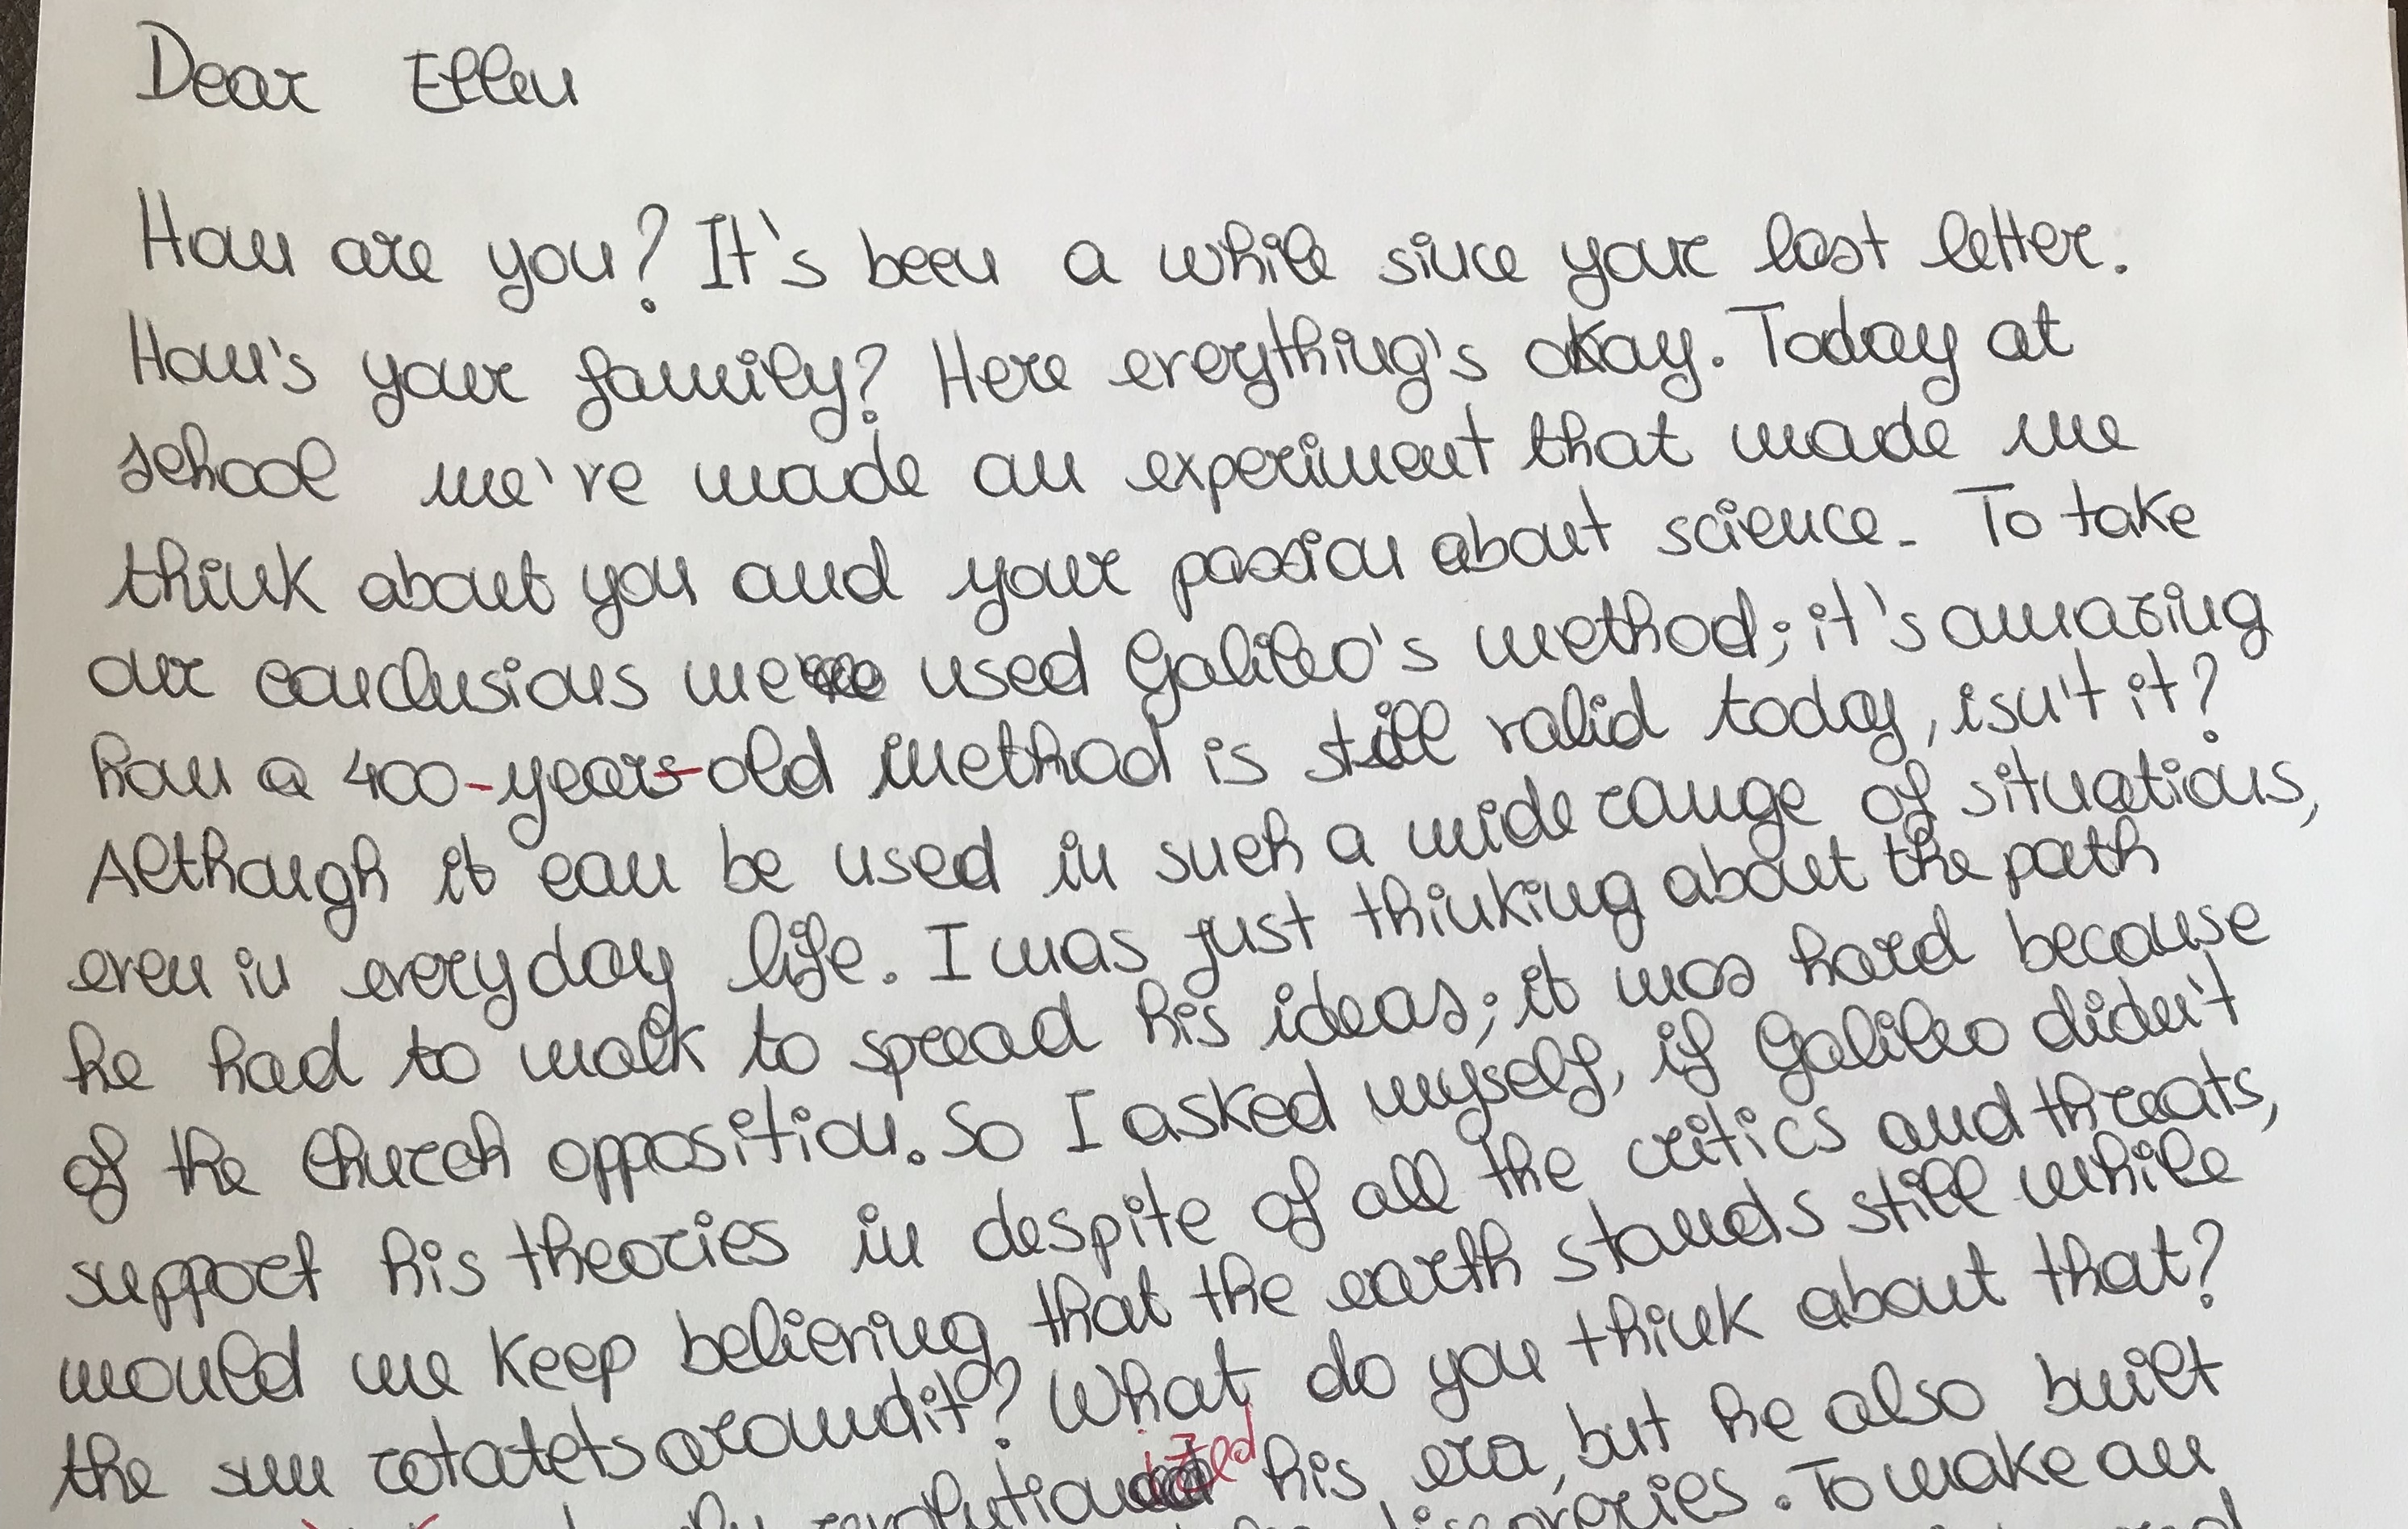 Dear Ellen
How are you? It's been a while since your last letter.
How's your family? Here everything's okay. Today at
school we've made an experiment that made me
think about you and your passion about science. To take
our conclusions we used Galileo's method; it's amazing
how a 400-years-old method is still valid today, isn't it?
Although it can be used in such a wide range of situations,
even in everyday life. I was just thinking about the path
he had to walk to spread his ideas; it was hard because
of the Church opposition. So I asked myself, if Galileo didn't
support his theories in despite of all the critics and threats,
would we keep believing that the earth stands still while
the sun rotatets around it? What do you think about that?
revolutionized his era, but he also built
discoveries. To make an